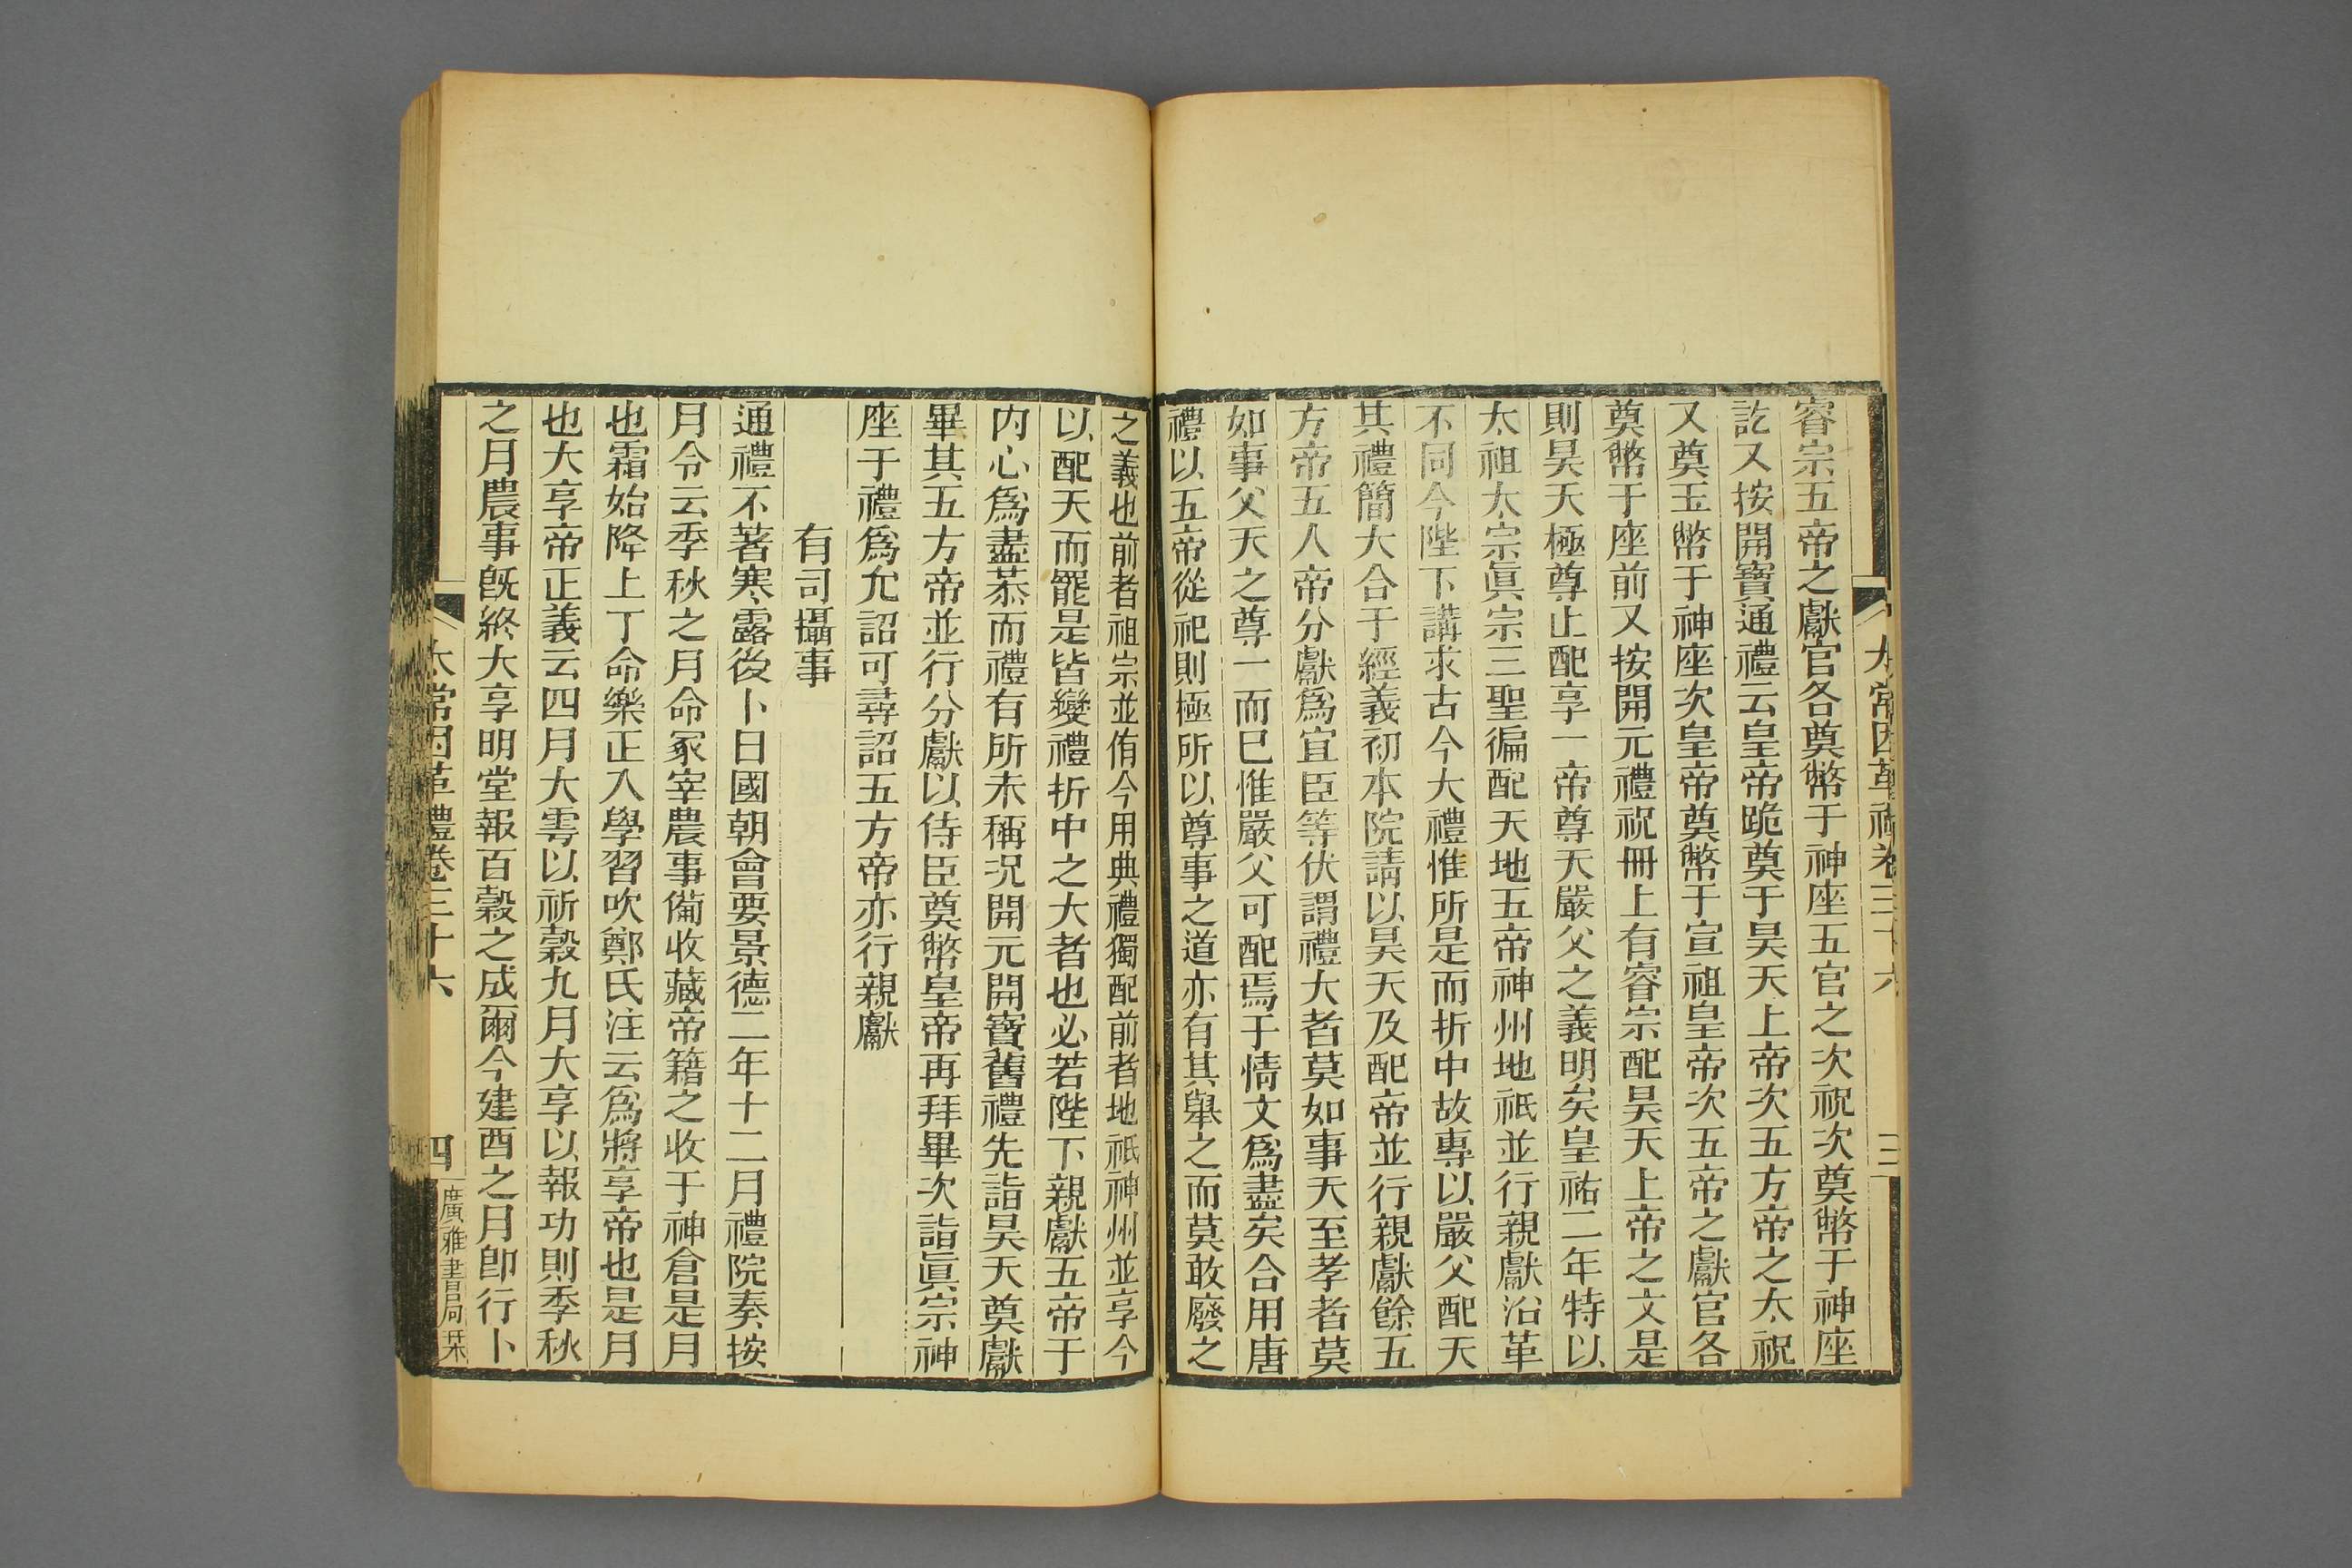 太常因革禮卷三十六
三
睿宗五帝之獻官各奠幣于神座五官之次祝次奠幣于神座
訖又按開寶通禮云皇帝跪奠于昊天上帝次五方帝之太祝
又奠玉幣于神座次皇帝奠幣于宣祖皇帝次五帝之獻官各
奠幣于座前又按開元禮祝冊上有睿宗配昊天上帝之文是
則昊天極尊止配享一帝尊天嚴父之義明矣皇祐二年特以
太祖太宗眞宗三聖徧配天地五帝神州地祇並行親獻沿革
不同今陛下講求古今大禮惟所是而折中故專以嚴父配天
其禮簡大合于經義初本院請以昊天及配帝並行親獻餘五
方帝五人帝分獻爲宜臣等伏謂禮大者莫如事天至孝者莫
如事父天之尊一而已惟嚴父可配焉于情文爲盡矣合用唐
禮以五帝從祀則極所以尊事之道亦有其舉之而莫敢廢之
之義也前者祖宗並侑今用典禮獨配前者地祇神州並享今
以配天而罷是皆變禮折中之大者也必若陛下親獻五帝于
内心爲盡恭而禮有所未稱况開元開寶舊禮先詣昊天奠獻
畢其五方帝並行分獻以侍臣奠幣皇帝再拜畢次詣眞宗神
座于禮爲允詔可尋詔五方帝亦行親獻
有司攝事
通禮不著寒露後卜日國朝會要景德二年十二月禮院奏按
月令云季秋之月命冢宰農事備收藏帝籍之收于神倉是月
也霜始降上丁命樂正入學習吹鄭氏注云爲將享帝也是月
也大享帝正義云四月大雩以祈穀九月大享以報功則季秋
之月農事旣終大享明堂報百穀之成爾今建酉之月卽行卜
太常因革禮卷三十六
四
廣雅書局栞